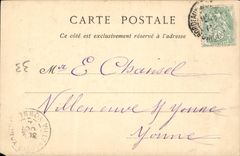 CARTE POSTALE
Ce côté est exclusivement réservé à l'adresse
Mr E Chansel
Villeneuve s/ Yonne
Yonne